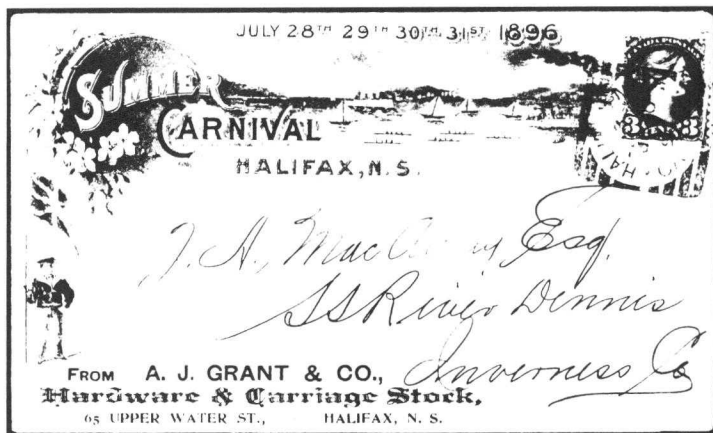 JULY 28TH 29TH 30TH 31ST 1896
SUMMER
CARNIVAL
HALIFAX, N. S.
3 3
HALI
J. A. Esq.
SS River Dennis
Inverness Co
FROM A. J. GRANT & CO.,
Hardware & Carriage Stock,
65 UPPER WATER ST., HALIFAX, N. S.